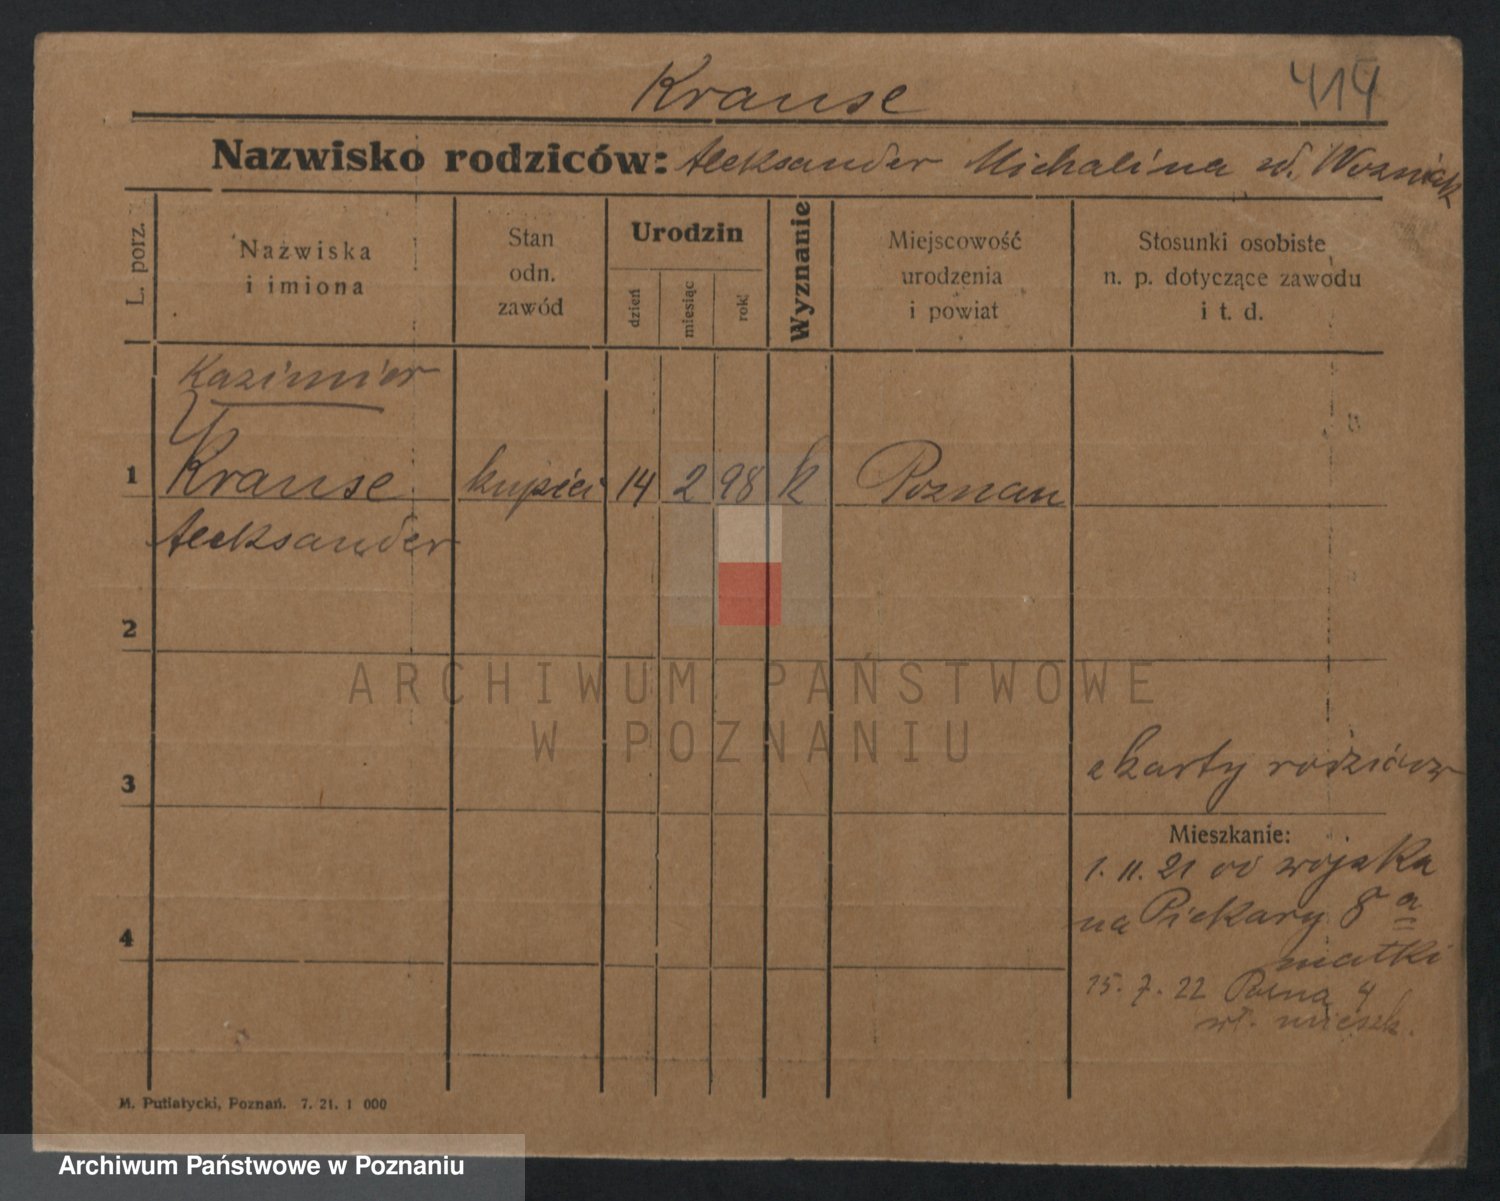 Krause
414
Nazwisko rodziców: Aleksander Michalina zd. Wozniak
L. porz.
Nazwiska
i imiona
Stan
odn.
zawód
Urodzin
dzień
miesiąc
rok
Wyznanie
Miejscowość
urodzenia
i powiat
Stosunki osobiste
n. p. dotyczące zawodu
i t. d.
Kazimier
1 Krause kupiec 14 2 98 k Poznan
Aleksander
2
ARCHIWUM PAŃSTWOWE
W POZNANIU
karty rodziców
3
Mieszkanie:
1. 11. 21 od wojska
na Piekary 8 a
4
matki
15. 7. 22 4
wł. mieszk.
M. Putiatycki, Poznań. 7. 21. 1 000
Archiwum Państwowe w Poznaniu